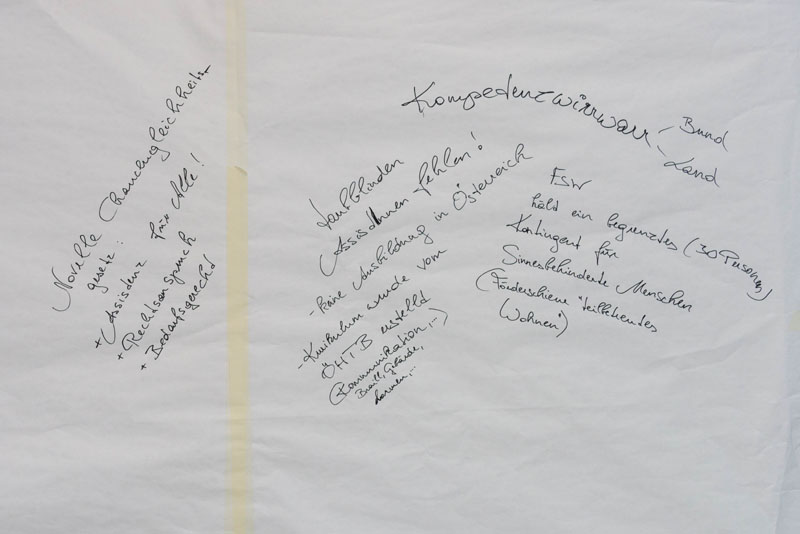 Novelle Chancengleichheits-
gesetz:
+ Assistenz für Alle!
+ Rechtsanspruch
+ Bedarfsgerecht
taubblinden
Assistinnen fehlen!
- keine Ausbildung in Österreich
- Kurikulum wurde vom
ÖHTB erstellt
(Kommunikation,...)
Braill, Gebärde,
lormen,...
Kompedenzwirrwarr - Bund
- Land
FSW
hält ein begrenztes (30 Personen)
Kontingent für
Sinnesbehinderte Menschen
(Förderschiene "teilbetreutes
Wohnen")